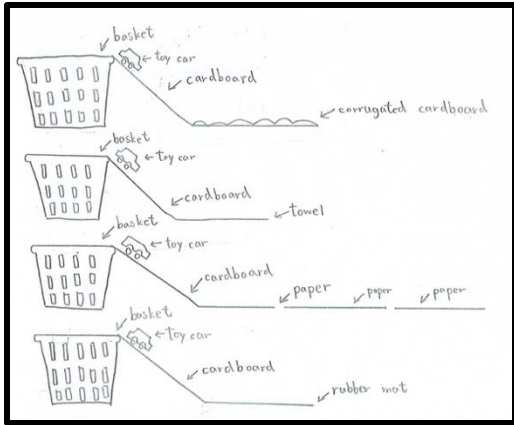 basket
toy car
cardboard
corrugated cardboard
basket
toy car
cardboard
towel
basket
toy car
cardboard
paper paper paper
basket
toy car
cardboard
rubber mat